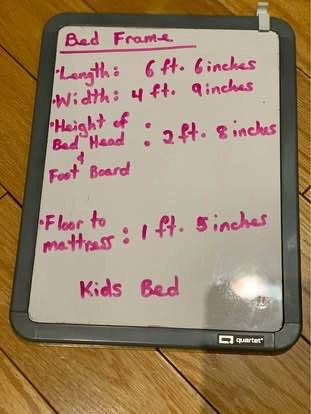 Bed Frame
• Length: 6 ft. 6 inches
• Width: 4 ft. 9 inches
• Height of
Bed Head : 2 ft. 8 inches
&
Foot Board
• Floor to
mattress: 1 ft. 5 inches
Kids Bed
quartet